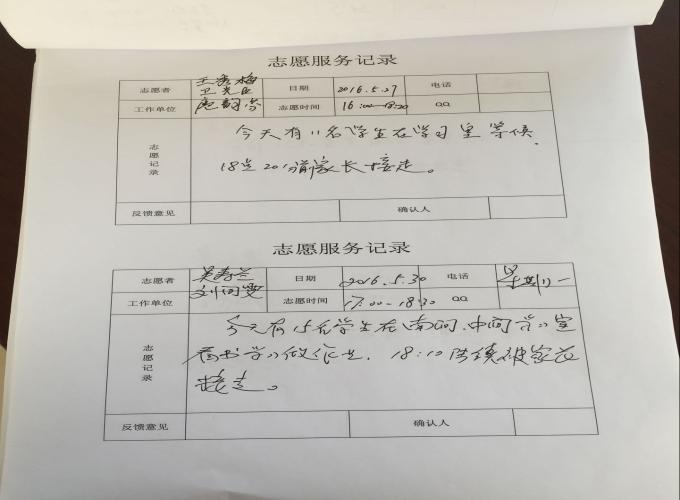 志愿服务记录
志愿者 王秀梅 日期 2016.5.27 电话
工作单位 志愿时间 16:00-18:20 QQ
志愿记录 今天有11名学生在学习里等候.
18点20分前家长接走。
反馈意见 确认人
志愿服务记录
志愿者 日期 2016.5.30 电话 星期一
工作单位 志愿时间 17:00-18:30 QQ
志愿记录 今天有15名学生在南间,中间学习室
看书学习做作业. 18:10陆续被家长
接走。
反馈意见 确认人